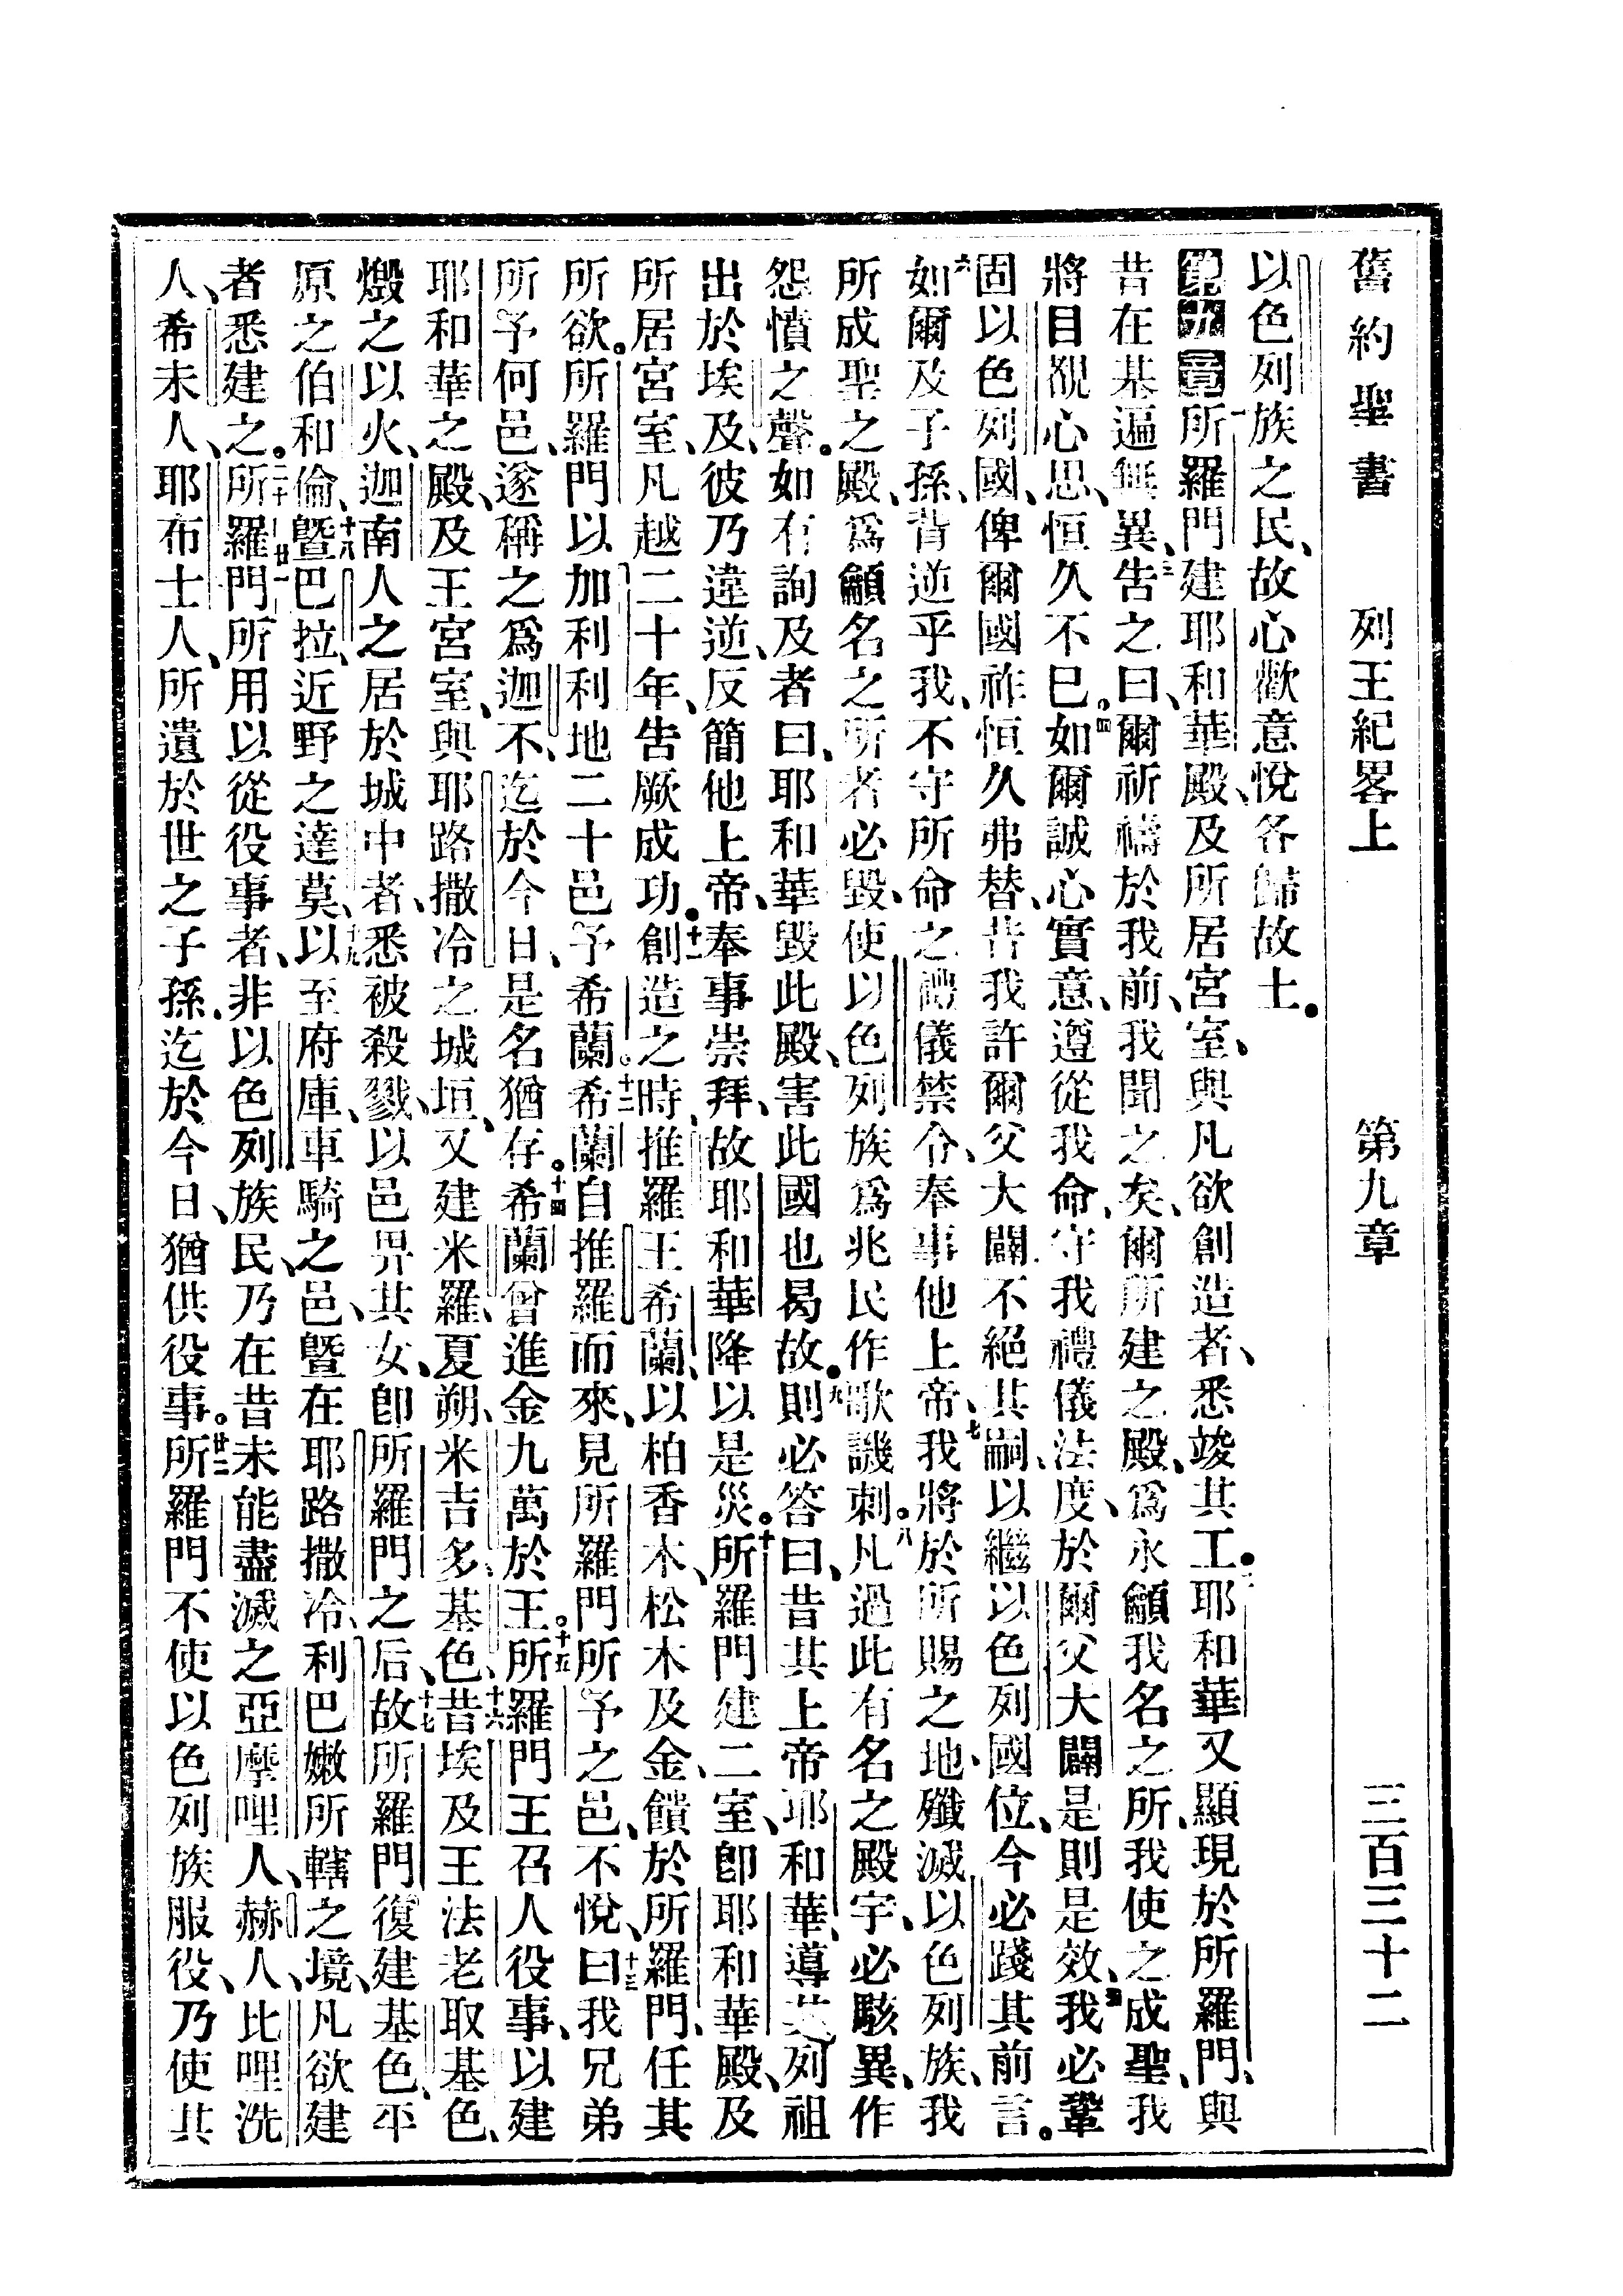 舊約聖書 列王紀畧上 第九章 三百三十二
以色列族之民、故心歡意悅各歸故土。
第九章 一所羅門建耶和華殿、及所居宮室、與凡欲創造者、悉竣其工。二耶和華又顯現於所羅門、與
昔在基遍無異、三告之曰、爾祈禱於我前、我聞之矣、爾所建之殿、爲永籲我名之所、我使之成聖、我
將目覩心思、恒久不已。四如爾誠心實意、遵從我命、守我禮儀法度、於爾父大闢是則是效、五我必鞏
固以色列國、俾爾國祚恒久弗替、昔我許爾父大闢、不絕其嗣、以繼以色列國位、今必踐其前言。
六如爾及子孫、背逆乎我、不守所命之禮儀禁令、奉事他上帝、七我將於所賜之地、殲滅以色列族、我
所成聖之殿、爲籲名之所者必毀、使以色列族爲兆民作歌譏刺。八凡過此有名之殿宇、必駭異、作
怨憤之聲。如有詢及者曰、耶和華毀此殿、害此國也曷故。九則必答曰、昔其上帝耶和華、導其列祖
出於埃及、彼乃違逆、反簡他上帝、奉事崇拜、故耶和華降以是災。十所羅門建二室、卽耶和華殿、及
所居宮室、凡越二十年、告厥成功。十一創造之時、推羅王希蘭、以柏香木、松木及金、饋於所羅門、任其
所欲。所羅門以加利利地二十邑予希蘭。十二希蘭自推羅而來、見所羅門所予之邑、不悅、十三曰、我兄弟
所予何邑、遂稱之爲迦不、迄於今日、是名猶存。十四希蘭曾進金九萬於王。十五所羅門王召人役事、以建
耶和華之殿、及王宮室、與耶路撒冷之城垣、又建米羅、夏朔、米吉多、基色、十六昔埃及王法老取基色、
燬之以火、迦南人之居於城中者、悉被殺戮、以邑畀其女、卽所羅門之后、十七故所羅門復建基色、平
原之伯和倫、十八暨巴拉、近野之達莫、十九以至府庫、車騎之邑、暨在耶路撒冷、利巴嫩所轄之境、凡欲建
者悉建之。二十所羅門廿一所用以從役事者、非以色列族民、乃在昔未能盡滅之亞摩哩人、赫人、比哩洗
人、希未人、耶布士人、所遺於世之子孫、迄於今日、猶供役事。廿二所羅門不使以色列族服役、乃使其